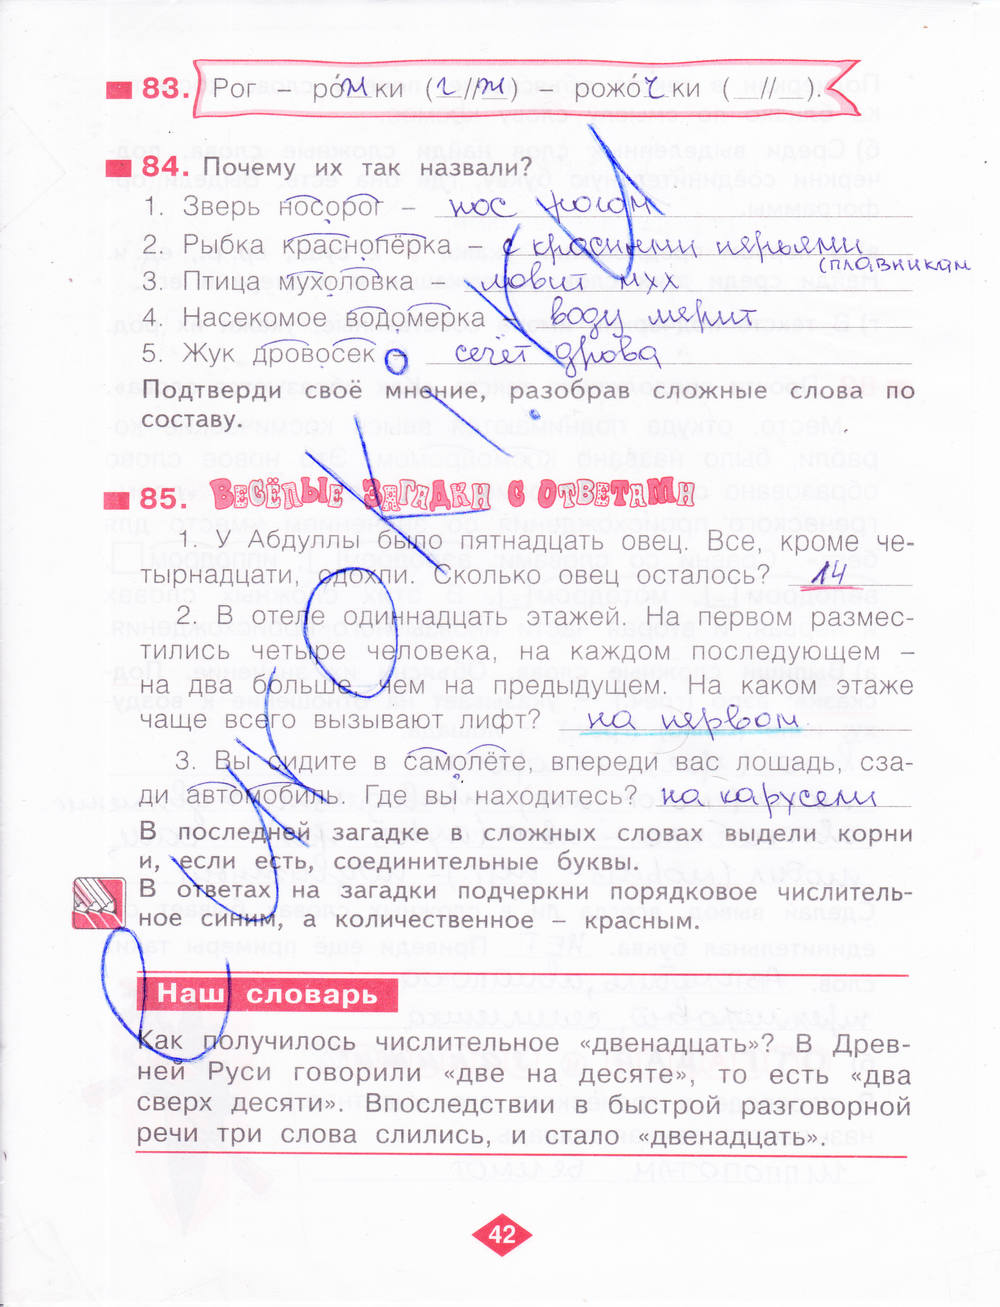 83. Рог – ро́жки (г//ж) – рожо́чки ( __//__ ).
84. Почему их так назвали?
1. Зверь носорог – нос рогом
2. Рыбка краснопёрка – с красными перьями
(плавникам
3. Птица мухоловка – ловит мух
4. Насекомое водомерка – воду мерит
5. Жук дровосек – сечёт дрова
Подтверди своё мнение, разобрав сложные слова по
составу.
85. ВЕСЁЛЫЕ ЗАГАДКИ С ОТВЕТАМИ
1. У Абдуллы было пятнадцать овец. Все, кроме че-
тырнадцати, сдохли. Сколько овец осталось? 14
2. В отеле одиннадцать этажей. На первом размес-
тились четыре человека, на каждом последующем –
на два больше, чем на предыдущем. На каком этаже
чаще всего вызывают лифт? на первом.
3. Вы сидите в самолёте, впереди вас лошадь, сза-
ди автомобиль. Где вы находитесь? на карусели
В последней загадке в сложных словах выдели корни
и, если есть, соединительные буквы.
В ответах на загадки подчеркни порядковое числитель-
ное синим, а количественное – красным.
Наш словарь
Как получилось числительное «двенадцать»? В Древ-
ней Руси говорили «две на десяте», то есть «два
сверх десяти». Впоследствии в быстрой разговорной
речи три слова слились, и стало «двенадцать».
42